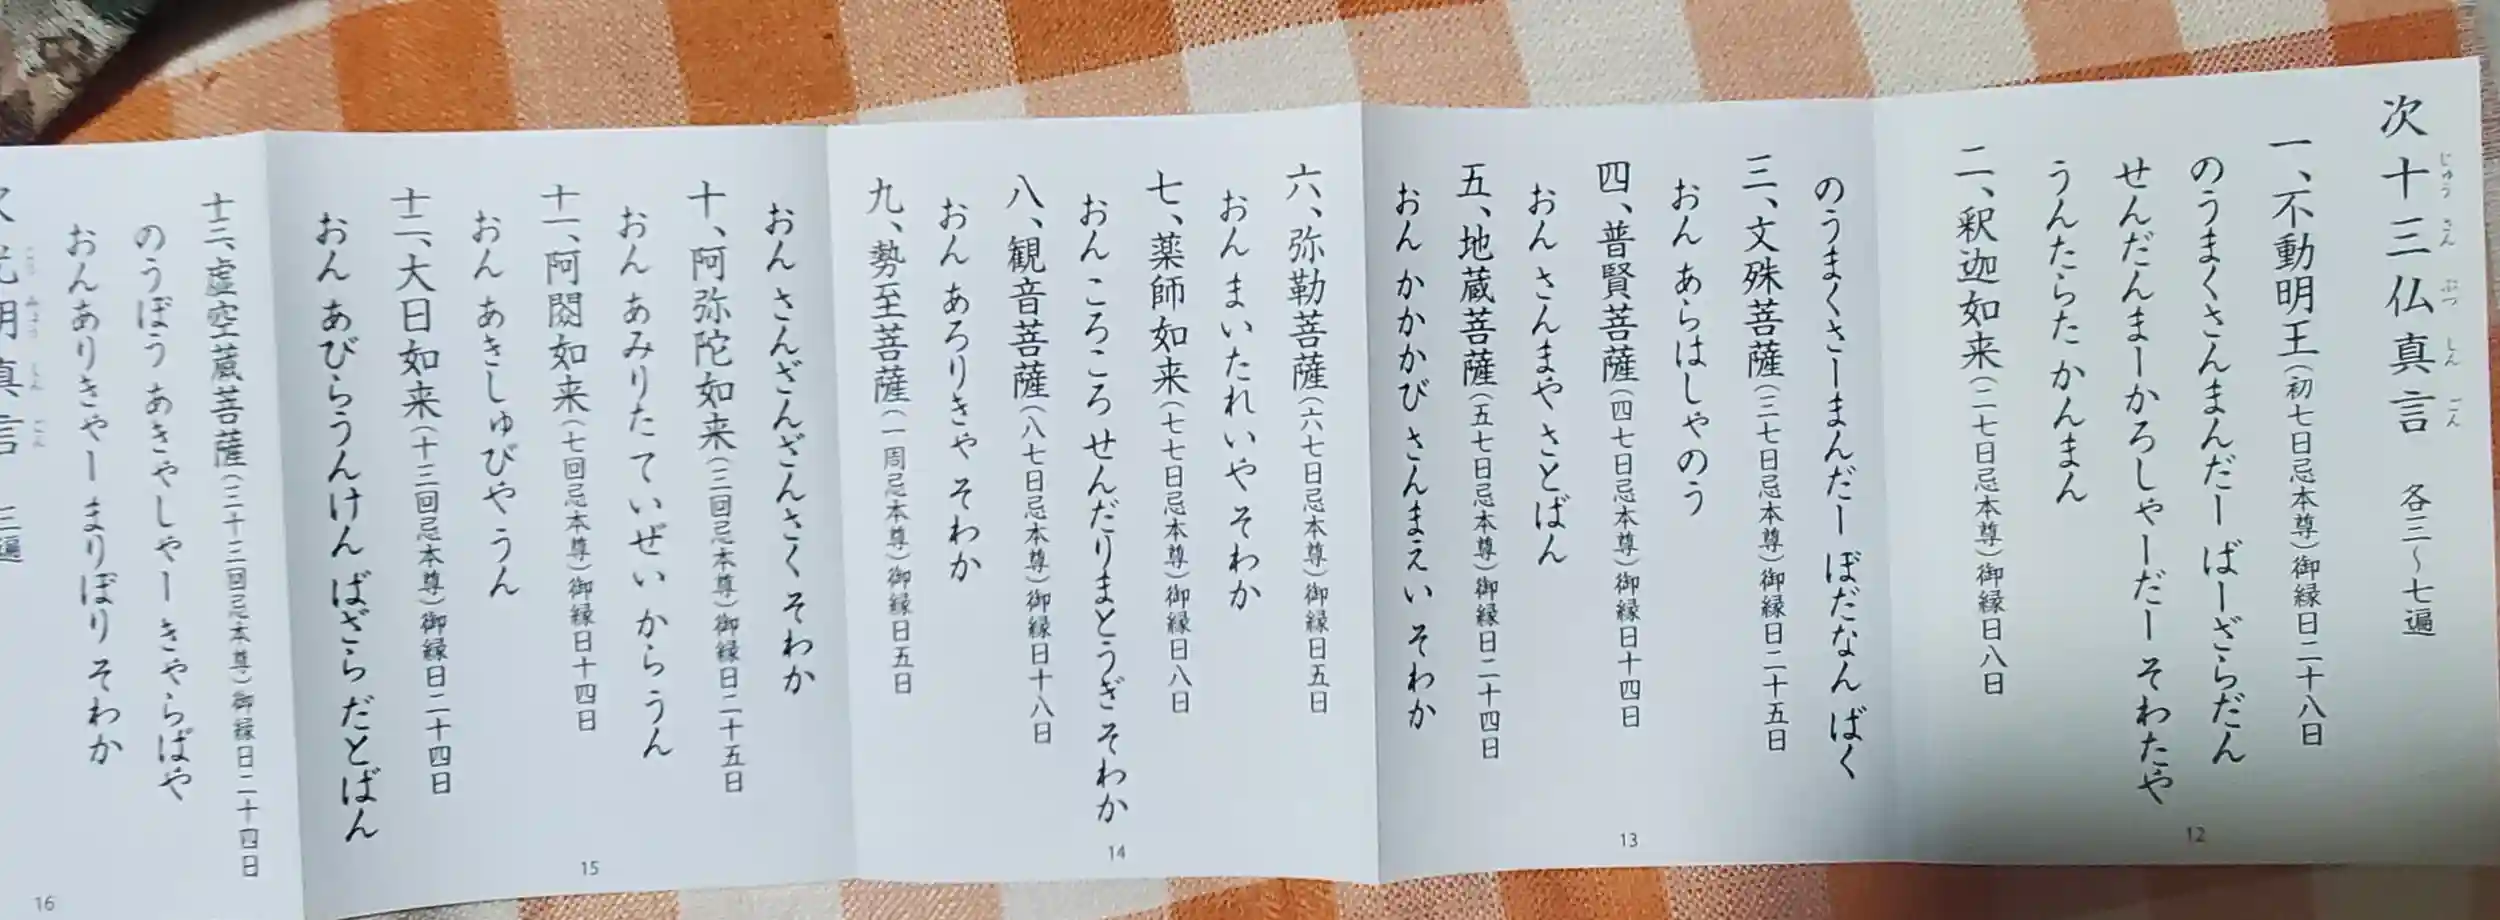 次 十三仏真言 各三〜七遍
じゅう さん ぶつ しん ごん
一、不動明王(初七日忌本尊)御縁日二十八日
のうまくさんまんだー ばーざらだん
せんだんまーかろしゃーだー そわたや
うんたらた かんまん
二、釈迦如来(二七日忌本尊)御縁日八日
12
のうまくさーまんだー ぼだなん ばく
三、文殊菩薩(三七日忌本尊)御縁日二十五日
おん あらはしゃのう
四、普賢菩薩(四七日忌本尊)御縁日十四日
おん さんまや さとばん
五、地蔵菩薩(五七日忌本尊)御縁日二十四日
おん かかかび さんまえい そわか
13
六、弥勒菩薩(六七日忌本尊)御縁日五日
おん まいたれいや そわか
七、薬師如来(七七日忌本尊)御縁日八日
おん ころころ せんだりまとうぎ そわか
八、観音菩薩(八七日忌本尊)御縁日十八日
おん あろりきゃ そわか
九、勢至菩薩(一周忌本尊)御縁日五日
14
おん さんざんざんさく そわか
十、阿弥陀如来(三回忌本尊)御縁日二十五日
おん あみりた ていぜい からうん
十一、阿閦如来(七回忌本尊)御縁日十四日
おん あきしゅびや うん
十二、大日如来(十三回忌本尊)御縁日二十四日
おん あびらうんけん ばざら だとばん
15
十三、虚空蔵菩薩(三十三回忌本尊)御縁日二十四日
のうぼう あきゃしゃー きゃらばや
おんありきゃー まりぼり そわか
次 光明真言 三遍
こう みょう しん ごん
16